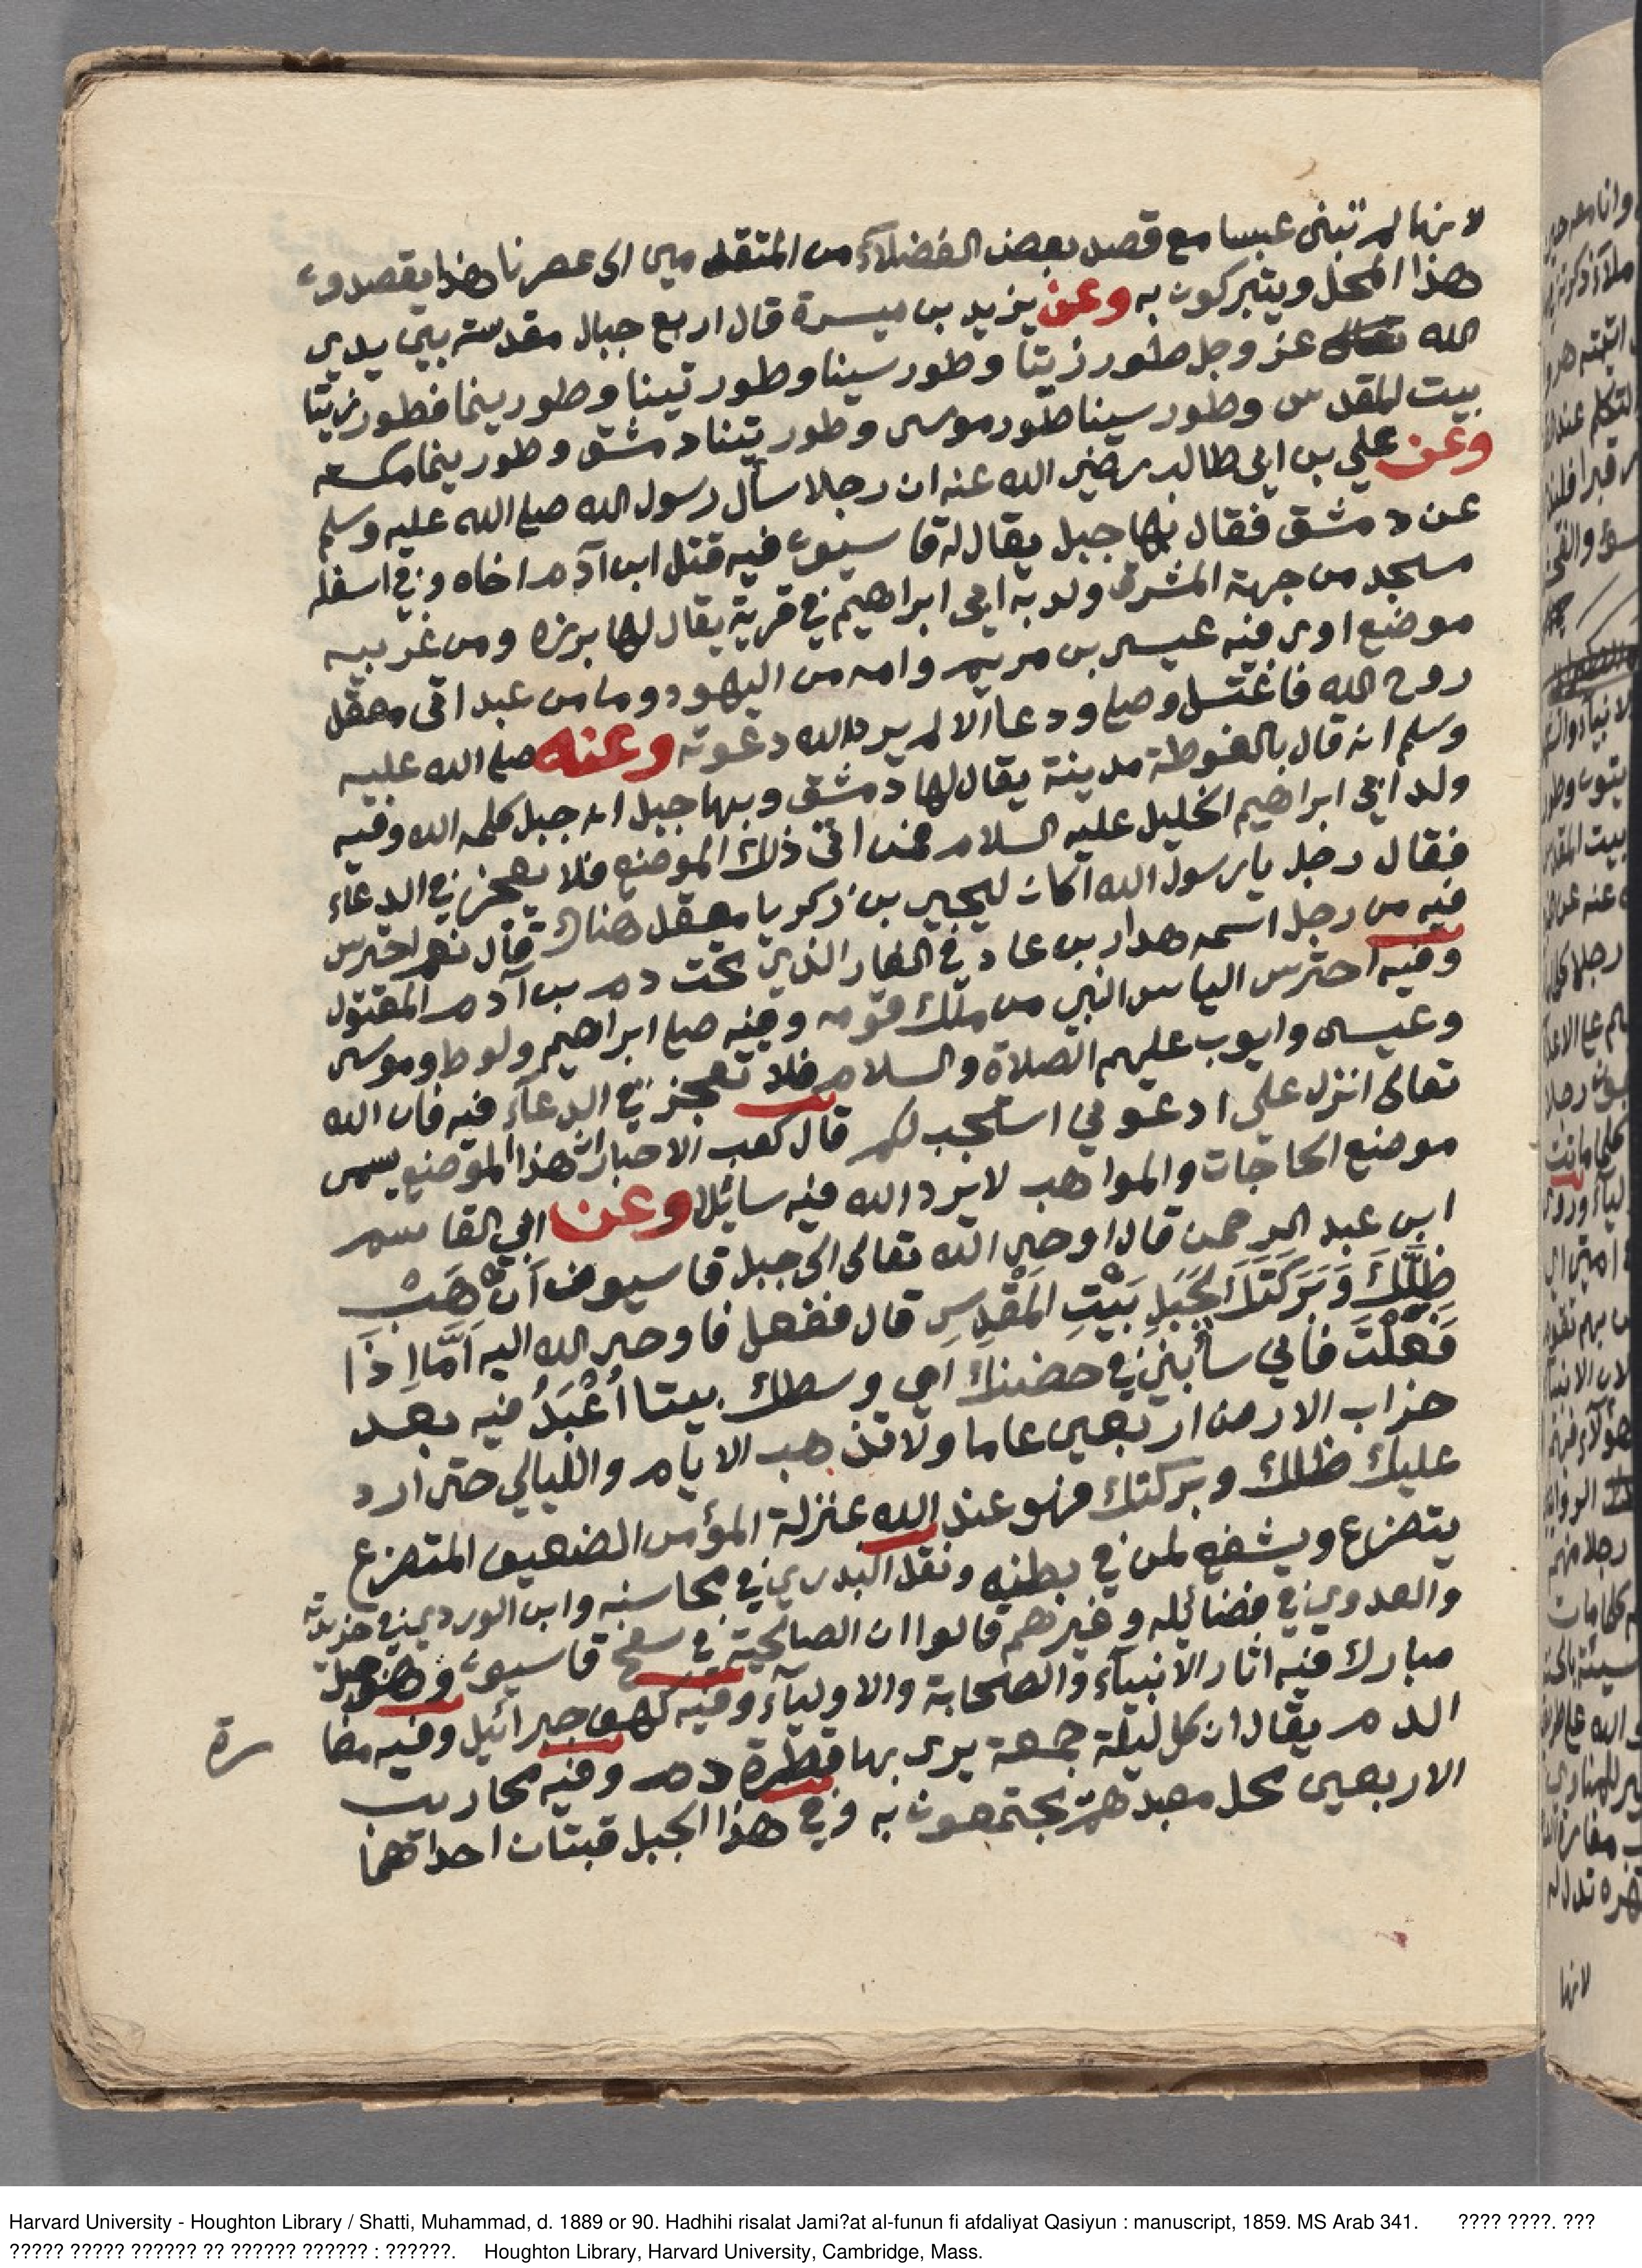 لانها لم تبنى عبسا مع قصد بعض الفضلآء من المتقدمين الى عصرنا هذا يقصدون
هذا المحل ويتبركون به وعن يزيد بن ميسرة قال اربع جبال مقدسة بين يدي
الله تعالى عز وجل طور زيتا وطور سينا وطور تينا وطور ينما فطور زيتا
بيت المقدس وطور سينا طور موسى وطور تينا دمشق وطور ينما مكة
وعن علي بن ابي طالب رضي الله عنه ان رجلا سأل رسول الله صلى الله عليه وسلم
عن دمشق فقال بها جبل يقال له قاسيون فيه قتل ابن آدم اخاه وفي اسفله
مسجد من جهة المشرق ولد به ابي ابراهيم في قرية يقال لها برزه ومن غربيه
موضع اوى فيه عيسى بن مريم وامه من اليهود وما من عبد اتى معقل
روح الله فاغتسل وصلى ودعا الا لم يرد الله دعوته وعنه صلى الله عليه
وسلم انه قال بالغوطة مدينة يقال لها دمشق وبها جبل انه جبل كلمه الله وفيه
ولد ابي ابراهيم الخليل عليه السلام فمن اتى ذلك الموضع فلا يعجز في الدعاء
فقال رجل يا رسول الله اكان ليحيى بن زكريا معقل هناك قال نعم احترس
فيه من رجل اسمه هدار بن عاد في الغار الذي تحت دم بن آدم المقتول
وفيه احترس الياس النبي من ملك قومه وفيه صلى ابراهيم ولوط وموسى
وعيسى وايوب عليهم الصلاة والسلام فلا تعجز في الدعآء فيه فان الله
تعالى انزل علي ادعوني استجب لكم قال كعب الاحبار ان هذا الموضع يسمى
موضع الحاجات والمواهب لا يرد الله فيه سائلا وعن ابي القاسم
ابن عبد الرحمن قال اوحى الله تعالى الى جبل قاسيون أن هَبْ
ظِلَّكَ وَبَرَكَتَكَ لِجَبَلِ بَيْتِ المَقْدِسِ قال ففعل فاوحى الله اليه أمَّا إِذَا
فَعَلْتَ فاني سأبني في حضنك اي وسطك بيتا أُعْبَدُ فيه بعد
خراب الارض اربعين عاما ولا تذهب الايام والليالي حتى ارد
عليك ظلك وبركتك فهو عند الله بمنزلة المؤمن الضعيف المتضرع
يتضرع ويشفع لمن في بطنه ونقل البدري في محاسنه وابن الوردي في خريدته
والعدوي في فضائله وغيرهم قالوا ان الصالحية في سفح قاسيون وهو جبل
مبارك فيه اثار الأنبيآء والصحابة والاوليآء وفيه كهف جبرائيل وفيه مغا
رة
الدم يقال ان كل ليلة جمعة يرى بها قطرة دم وفيه محاريب
الاربعين محل معبدهم يجتمعون به وفي هذا الجبل قبتان احداهما
Harvard University - Houghton Library / Shatti, Muhammad, d. 1889 or 90. Hadhihi risalat Jami?at al-funun fi afdaliyat Qasiyun : manuscript, 1859. MS Arab 341. ???? ????. ???
????? ????? ?????? ?? ?????? ?????? : ??????. Houghton Library, Harvard University, Cambridge, Mass.